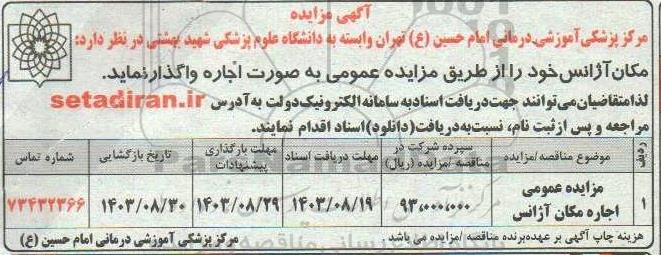 آگهی مزایده
مرکز پزشکی آموزشی درمانی امام حسین (ع) تهران وابسته به دانشگاه علوم پزشکی شهید بهشتی در نظر دارد:
مکان آژانس خود را از طریق مزایده عمومی به صورت اجاره واگذار نماید.
لذا متقاضیان می توانند جهت دریافت اسناد به سامانه الکترونیک دولت به آدرس setadiran.ir
مراجعه و پس از ثبت نام، نسبت به دریافت (دانلود) اسناد اقدام نمایند.
ردیف | موضوع مناقصه/مزایده | سپرده شرکت در مناقصه /مزایده (ریال) | مهلت دریافت اسناد | مهلت بارگذاری پیشنهادات | تاریخ بازگشایی | شماره تماس
۱ | مزایده عمومی اجاره مکان آژانس | ۹۳,۰۰۰,۰۰۰ | ۱۴۰۳/۰۸/۱۹ | ۱۴۰۳/۰۸/۲۹ | ۱۴۰۳/۰۸/۳۰ | ۷۳۴۳۲۳۶۶
هزینه چاپ آگهی بر عهده برنده مناقصه /مزایده می باشد
مرکز پزشکی آموزشی درمانی امام حسین (ع)